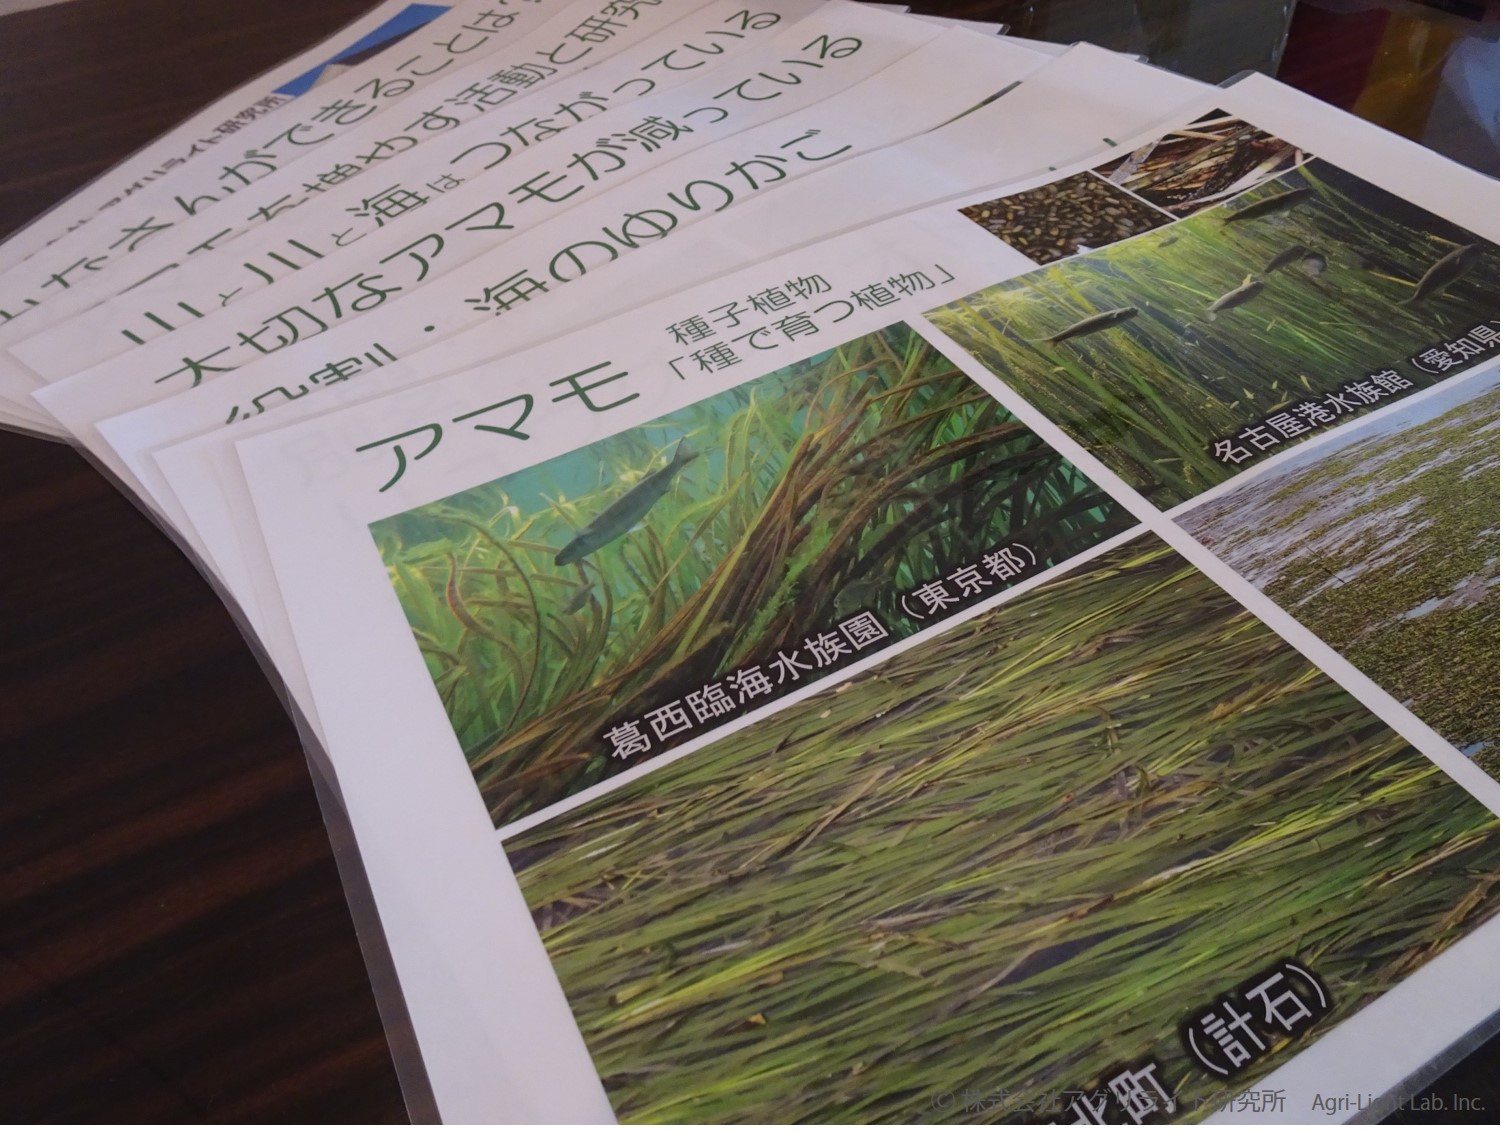 アグリライト研究所
さんができることは?
増やす活動と研究
山と川と海はつながっている
大切なアマモが減っている
役割・海のゆりかご
アマモ
種子植物
「種で育つ植物」
名古屋港水族館(愛知県)
葛西臨海水族園(東京都)
北町(計石)
© 株式会社アグリライト研究所 Agri-Light Lab. Inc.